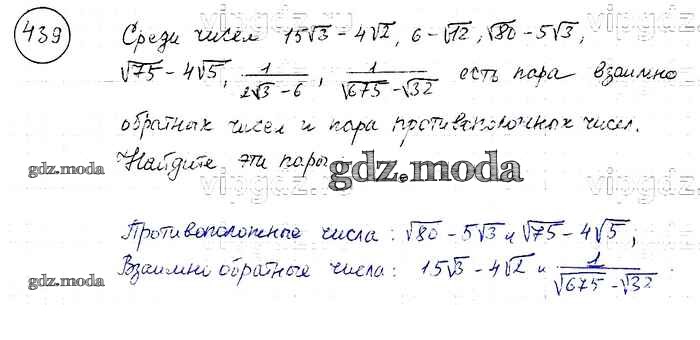 439
Среди чисел 15√3 - 4√2, 6 - √12, √80 - 5√3,
√75 - 4√5, 1/(2√3 - 6), 1/(√675 - √32) есть пара взаимно
обратных чисел и пара противоположных чисел.
Найдите эти пары.
gdz.moda
gdz.moda
Противоположные числа: √80 - 5√3 и √75 - 4√5,
Взаимно обратные числа: 15√3 - 4√2 и 1/(√675 - √32).
gdz.moda